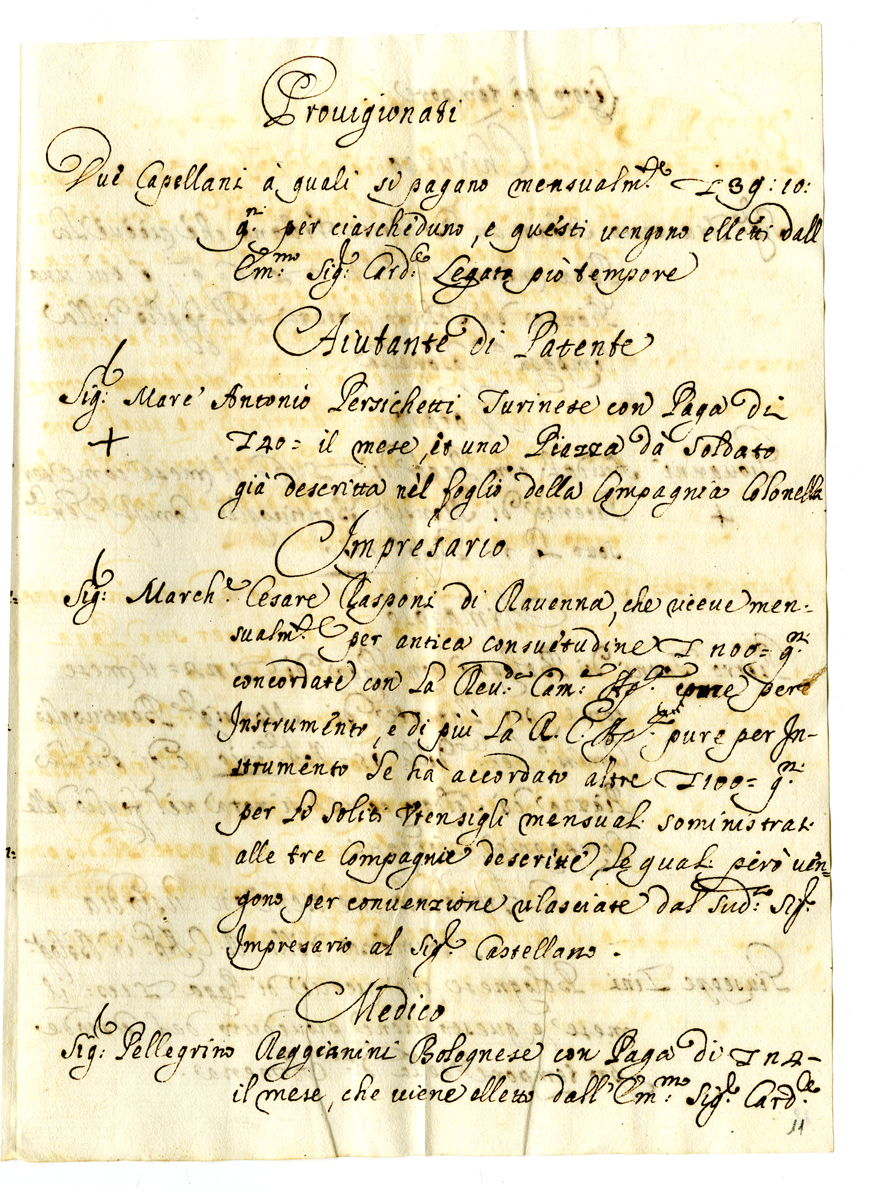 Provigionati
Due Capellani à quali si pagano mensualm.te 39: 10:
q.ni per ciascheduno, e questi vengono elletti dall
Em.mo Sig.r Card.le Legato prò tempore
Aiutante di Patente
Sig.r Marc' Antonio Persichetti Turinese con Paga di
+ 40= il mese, et una Piazza dà Soldato
già descritta nèl foglio della Compagnia Colonella
Impresario
Sig.r March.e Cesare Rasponi di Ravenna, che riceve men-
sualm.te per antica consuetudine q.ni
concordate con La Reu.da Cam.a Ap.lica pure per
Instrumento, e di più La R. C. Ap. pure per In-
strumento Se hà accordato altre 100= q.ni
per Li soliti Vtensigli mensual. sominístrat.
alle tre Compagnie descritte, Le qual. però vèn=
gono per convenzione rilasciate dal Sud.o Sig.r
Impresario al Sig.r Castellano.
Medico
Sig.r Pellegrino Reggianini Bolognese con Paga di
il mese, che viene elletto dall' Em.mo Sig.r Card.le
11